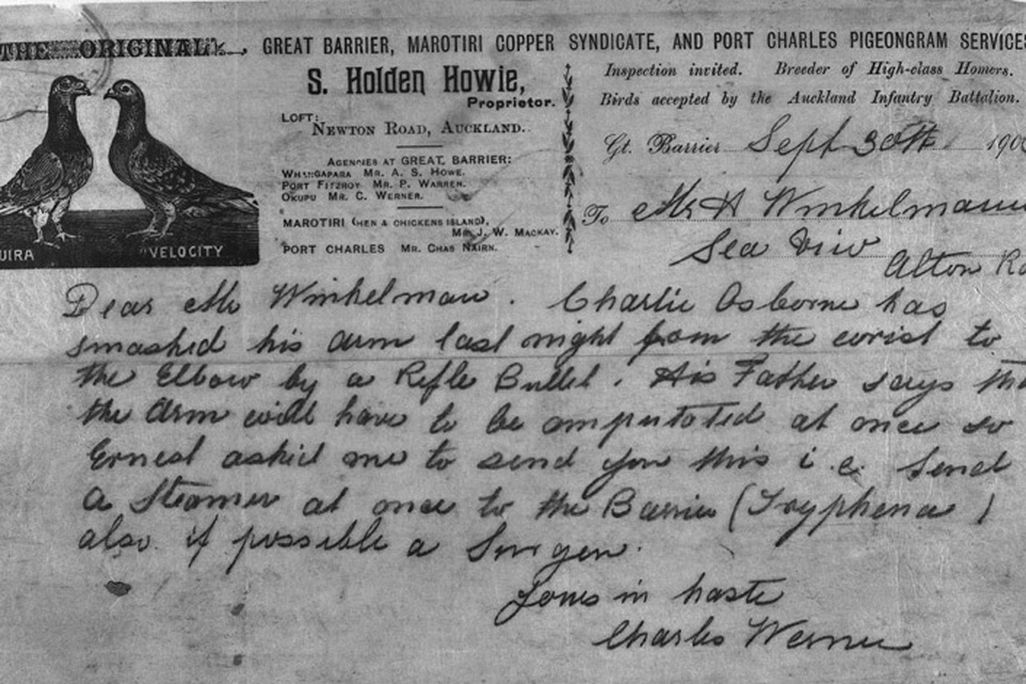 THE ORIGINAL
GREAT BARRIER, MAROTIRI COPPER SYNDICATE, AND PORT CHARLES PIGEONGRAM SERVICES
S. Holden Howie,
Proprietor.
LOFT:
NEWTON ROAD, AUCKLAND.
AGENCIES AT GREAT BARRIER:
WHANGAPARA MR. A. S. HOWE.
PORT FITZROY MR. P. WARREN.
OKUPU MR. C. WERNER.
MAROTIRI (HEN & CHICKENS ISLAND),
MR. J. W. MACKAY.
PORT CHARLES MR. CHAS NAIRN.
UIRA "VELOCITY
Inspection invited. Breeder of High-class Homers.
Birds accepted by the Auckland Infantry Battalion.
Gt. Barrier Sept 30th 190
To Mr H Winkelmann
Sea View
Alton Ro
Dear Mr Winkelman. Charlie Osborne has
smashed his arm last night from the wrist to
the Elbow by a Rifle Bullet. His Father says tha
the arm will have to be amputated at once so
Ernest asked me to send you this i.e. Send
a Steamer at once to the Barrier (Tryphena)
also if possible a Surgen.
Yours in haste
Charles Werner